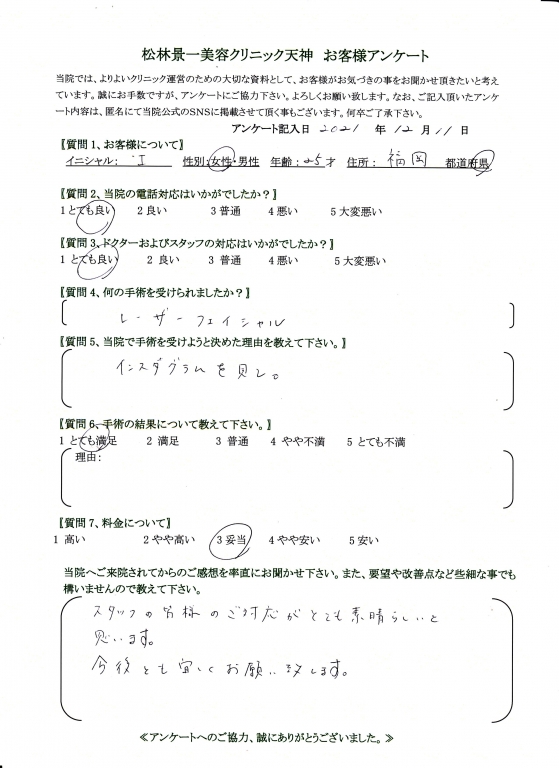 松林景一美容クリニック天神　お客様アンケート
当院では、よりよいクリニック運営のための大切な資料として、お客様がお気づきの事をお聞かせ頂きたいと考え
ています。誠にお手数ですが、アンケートにご協力下さい。よろしくお願い致します。なお、ご記入頂いたアンケ
ート内容は、匿名にて当院公式のSNSに掲載させて頂く事もございます。何卒ご了承下さい。
アンケート記入日 2021 年 12 月 11 日
【質問 1、お客様について】
イニシャル： I 性別：女性・男性 年齢：25才 住所： 福岡 都道府県
【質問 2、当院の電話対応はいかがでしたか？】
1 とても良い 2 良い 3 普通 4 悪い 5 大変悪い
【質問 3、ドクターおよびスタッフの対応はいかがでしたか？】
1 とても良い 2 良い 3 普通 4 悪い 5 大変悪い
【質問 4、何の手術を受けられましたか？】
レーザーフェイシャル
【質問 5、当院で手術を受けようと決めた理由を教えて下さい。】
インスタグラムを見て。
【質問 6、手術の結果について教えて下さい。】
1 とても満足 2 満足 3 普通 4 やや不満 5 とても不満
理由：
【質問 7、料金について】
1 高い 2 やや高い 3 妥当 4 やや安い 5 安い
当院へご来院されてからのご感想を率直にお聞かせ下さい。また、要望や改善点など些細な事でも
構いませんので教えて下さい。
スタッフの皆様のご対応がとても素晴らしいと
思います。
今後とも宜しくお願い致します。
≪アンケートへのご協力、誠にありがとうございました。≫